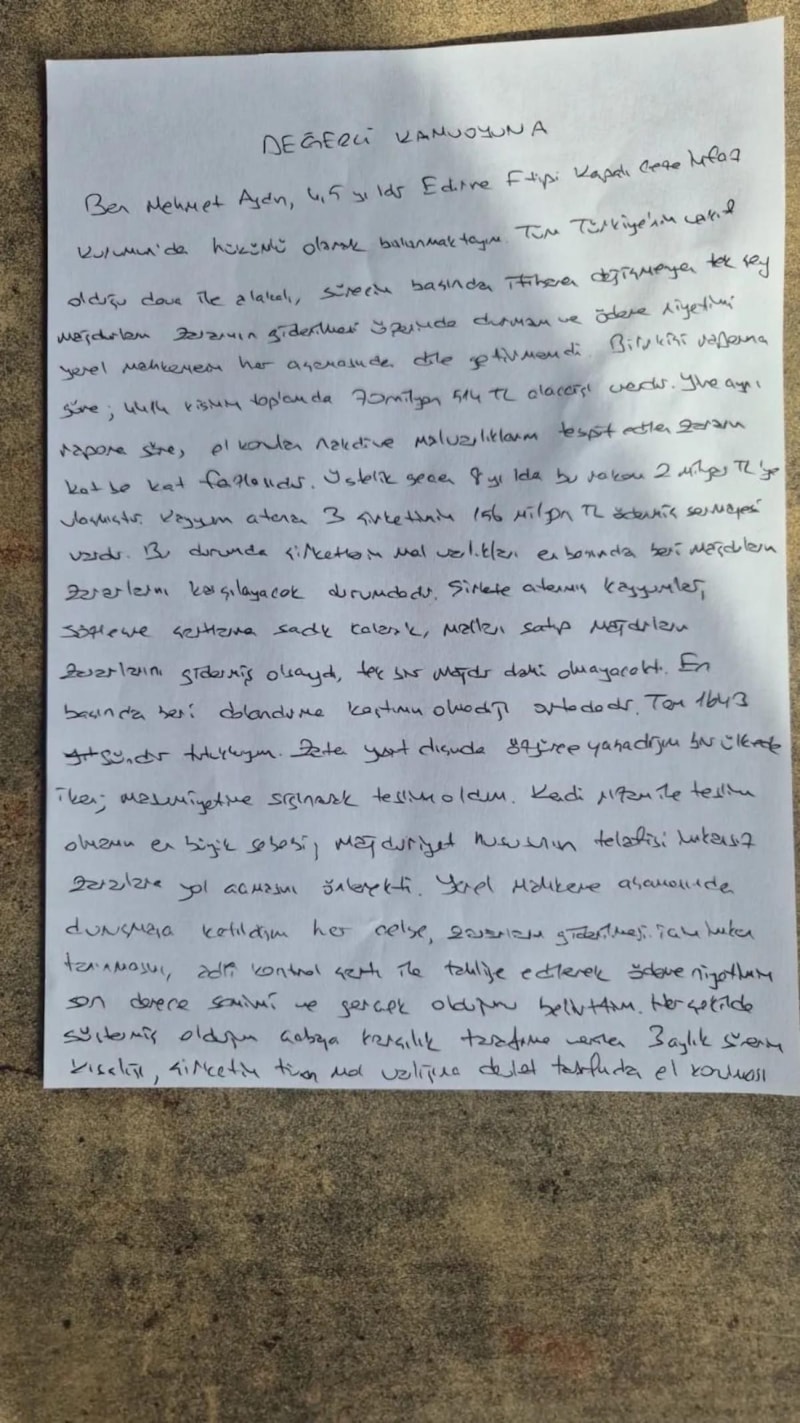 DEĞERLİ KAMUOYUNA
Ben Mehmet Aydın, 4,5 yıldır Edirne F tipi Kapalı Ceza İnfaz
Kurumun'da hükümlü olarak bulunmaktayım. Tüm Türkiye'nin vakıf
olduğu dava ile alakalı, sürecin başından itibaren değişmeyen tek şey
mağdurların zararının giderilmesi üzerinde durmam ve ödeme niyetimi
yerel mahkemenin her aşamasında dile getirmemdi. Bilirkişi raporuna
göre; kişinin toplamda 70 milyon 514 TL alacağı vardır. Yine aynı
rapora göre, el konulan nakdi ve malvarlıklarım tespit edilen zararın
kat be kat fazlasıdır. Üstelik geçen 8 yılda bu rakam 2 milyar TL'ye
ulaşmıştır. Kayyum atanan 3 şirketimin 156 milyon TL ödenmiş sermayesi
vardır. Bu durumda şirketlerin mal varlıkları en başından beri mağdurların
zararlarını karşılayacak durumdadır. Şirkete atanmış kayyumlar,
sözleşme şartlarına sadık kalarak, malları satıp mağdurların
zararlarını gidermiş olsaydı, tek bir mağdur dahi olmayacaktı. En
başından beri dolandırma kastımın olmadığı ortadadır. Tam 1643
gündür tutukluyum. Zaten yurt dışında özgürce yaşadığım bir ülkede
iken; masumiyetime sığınarak teslim oldum. Kendi rızam ile teslim
olmamın en büyük sebebi, mağduriyet hususunun telafisi imkansız
zararlara yol açmasını önlemekti. Yerel Mahkeme aşamasında
duruşmaya katıldığım her celse, zararların giderilmesi için imkan
tanınması, adli kontrol şartı ile tahliye edilerek ödeme niyetimin
son derece samimi ve gerçek olduğunu belirttim. Her şekilde
göstermiş olduğum çabaya karşılık tarafıma verilen 3 aylık sürenin
kısalığı, şirketin tüm mal varlığına devlet tarafından el konulması